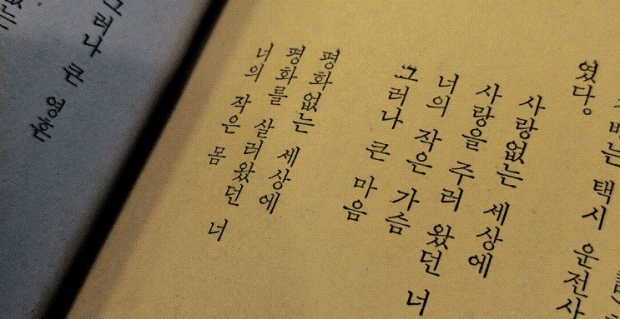 택시 운전사
였다.
사랑없는 세상에
사랑을 주러 왔던 너
너의 작은 가슴
그러나 큰 마음
평화 없는 세상에
평화를 살러왔던 너
너의 작은 몸
그러나 큰 영혼